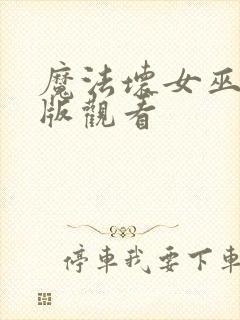 魔法壞女巫
版觀看
停車我要下車